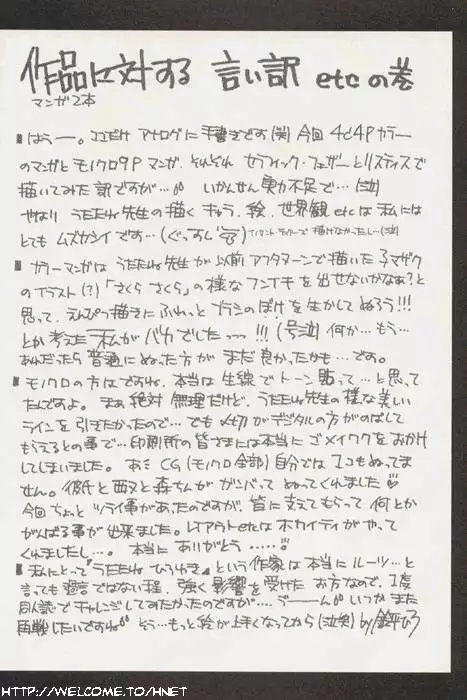 作品に対する 言い訳 etcの巻
マンガ2本
■はぅー。ココだけ アナログに 手書きです(笑) 今回 4C4Pカラー
のマンガと モノクロ9P マンガ、それぞれ セラフィック・フェザーとリスティスで
描いてみた訳ですが… いかんせん実力不足で…(泣)
やはり うたたね先生の描く きゃう、絵、世界観etcは 私には
とても ムズカシイです…(ぐっすし
■カラーマンガは うたたね先生が以前 アフタヌーンで描いた 子マザク
のイラスト(?)「さくら さくら」の様な フンイキを出せないかなぁ?と
思って、えんぴつ描きに ふわっと ブラシのぼけを生かしてぬろう!!!
とか考えた 私がバカでしたっっ !!! (号泣) 何か…もう…
あれだったら 普通に ぬった方が まだ良かったかも…です。
■モノクロの方はですね、本当は 生線でトーン貼って…と思って
たんですよ。まぁ 絶対 無理だけど、うたたね先生の様な美しい
ラインを引きたかったので…でも〆切がデジタルの方がのばして
もらえるとの事で…印刷所の皆さまには本当に ゴメイワクをおかけ
してしまいました。あぅ CG(モノクロ全部) 自分では 1コもぬってま
せん。彼氏と西又と森ちんが ガンバって ぬってくれました♡
今回 ちょっと ツライ事があったのですが、皆に支えてもらって 何とか
がんばる事が出来ました。レイアウトetcは ホカイティがやって
くれましたし…。本当に ありがとう……♡
■私にとって『うたたね ひろゆき』という作家は 本当に ルーツ…と
言っても過言ではない程、強く影響を受けた お方なので、1度
同人誌で チャレンジしてみたかったのですが… うーーん いつか また
再戦したいですね そう…もっと絵が上手くなってから(泣笑) by
HTTP://WELCOME.TO/HNET